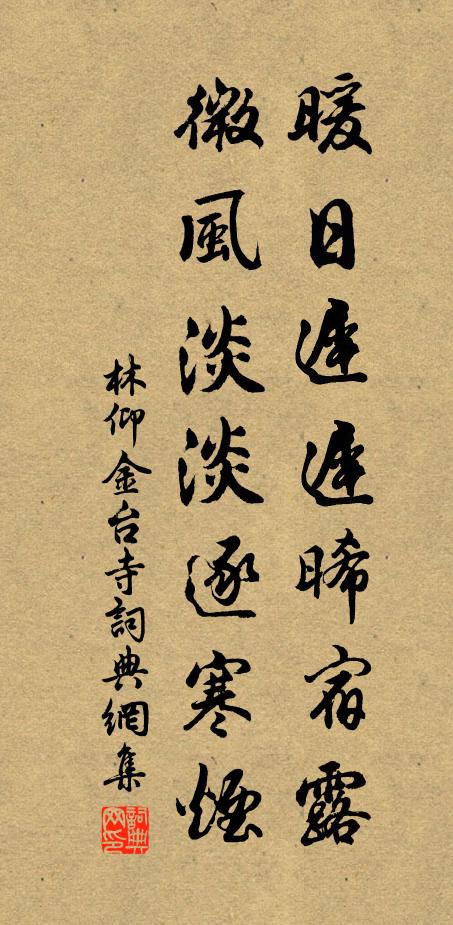 暖日遲遲晞宿露
微風淡淡逐寒煙
林仰金台寺詞典網集
詞典網印